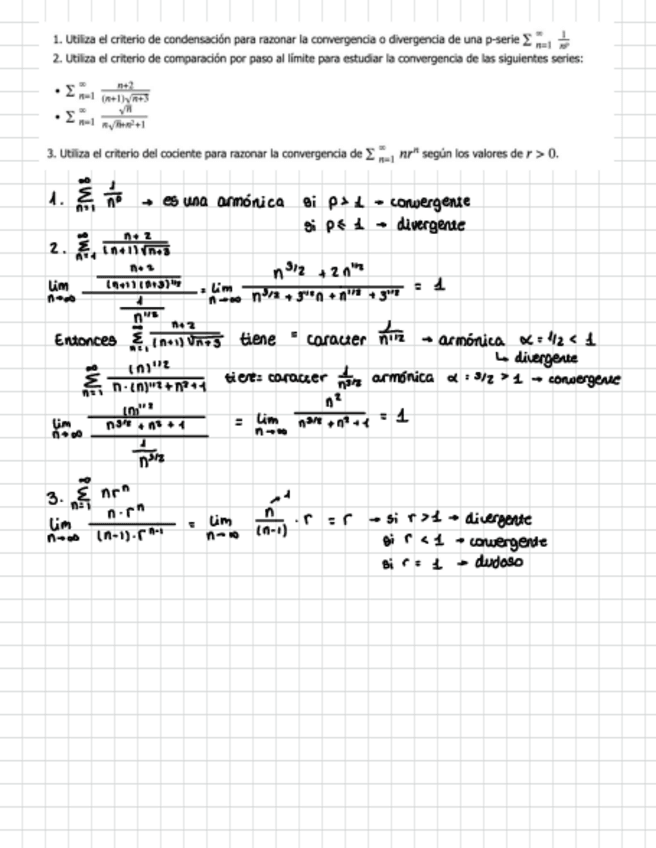 1. Utiliza el criterio de condensación para razonar la convergencia o divergencia de una p-serie ∑_{n=1}^{∞} 1/n^p
2. Utiliza el criterio de comparación por paso al límite para estudiar la convergencia de las siguientes series:
• ∑_{n=1}^{∞} (n+2)/((n+1)√(n+3))
• ∑_{n=1}^{∞} √n/(n√n+n²+1)
3. Utiliza el criterio del cociente para razonar la convergencia de ∑_{n=1}^{∞} nr^n según los valores de r > 0.
1. ∑_{n=1}^{∞} 1/n^p → es una armónica si p > 1 → convergente
si p ≤ 1 → divergente
2. ∑_{n=1}^{∞} (n+2)/((n+1)√(n+3))
lim_{n→∞} ((n+2)/((n+1)(n+3)^{1/2}))/(1/n^{1/2}) = lim_{n→∞} (n^{3/2} + 2n^{1/2})/(n^{3/2} + 3^{1/2}n + n^{1/2} + 3^{1/2}) = 1
Entonces ∑_{n=1}^{∞} (n+2)/((n+1)√(n+3)) tiene = caracter 1/n^{1/2} → armónica α = 1/2 < 1
↳ divergente
∑_{n=1}^{∞} (n)^{1/2}/(n·(n)^{1/2}+n²+1) tiene = caracter 1/n^{3/2} armónica α = 3/2 > 1 → convergente
lim_{n→∞} ((n)^{1/2}/(n^{3/2} + n² + 1))/(1/n^{3/2}) = lim_{n→∞} n²/(n^{3/2} + n² + 1) = 1
3. ∑_{n=1}^{∞} nr^n
lim_{n→∞} (n·r^n)/((n-1)·r^{n-1}) = lim_{n→∞} n/(n-1) →1 · r = r → si r > 1 → divergente
si r < 1 → convergente
si r = 1 → dudoso